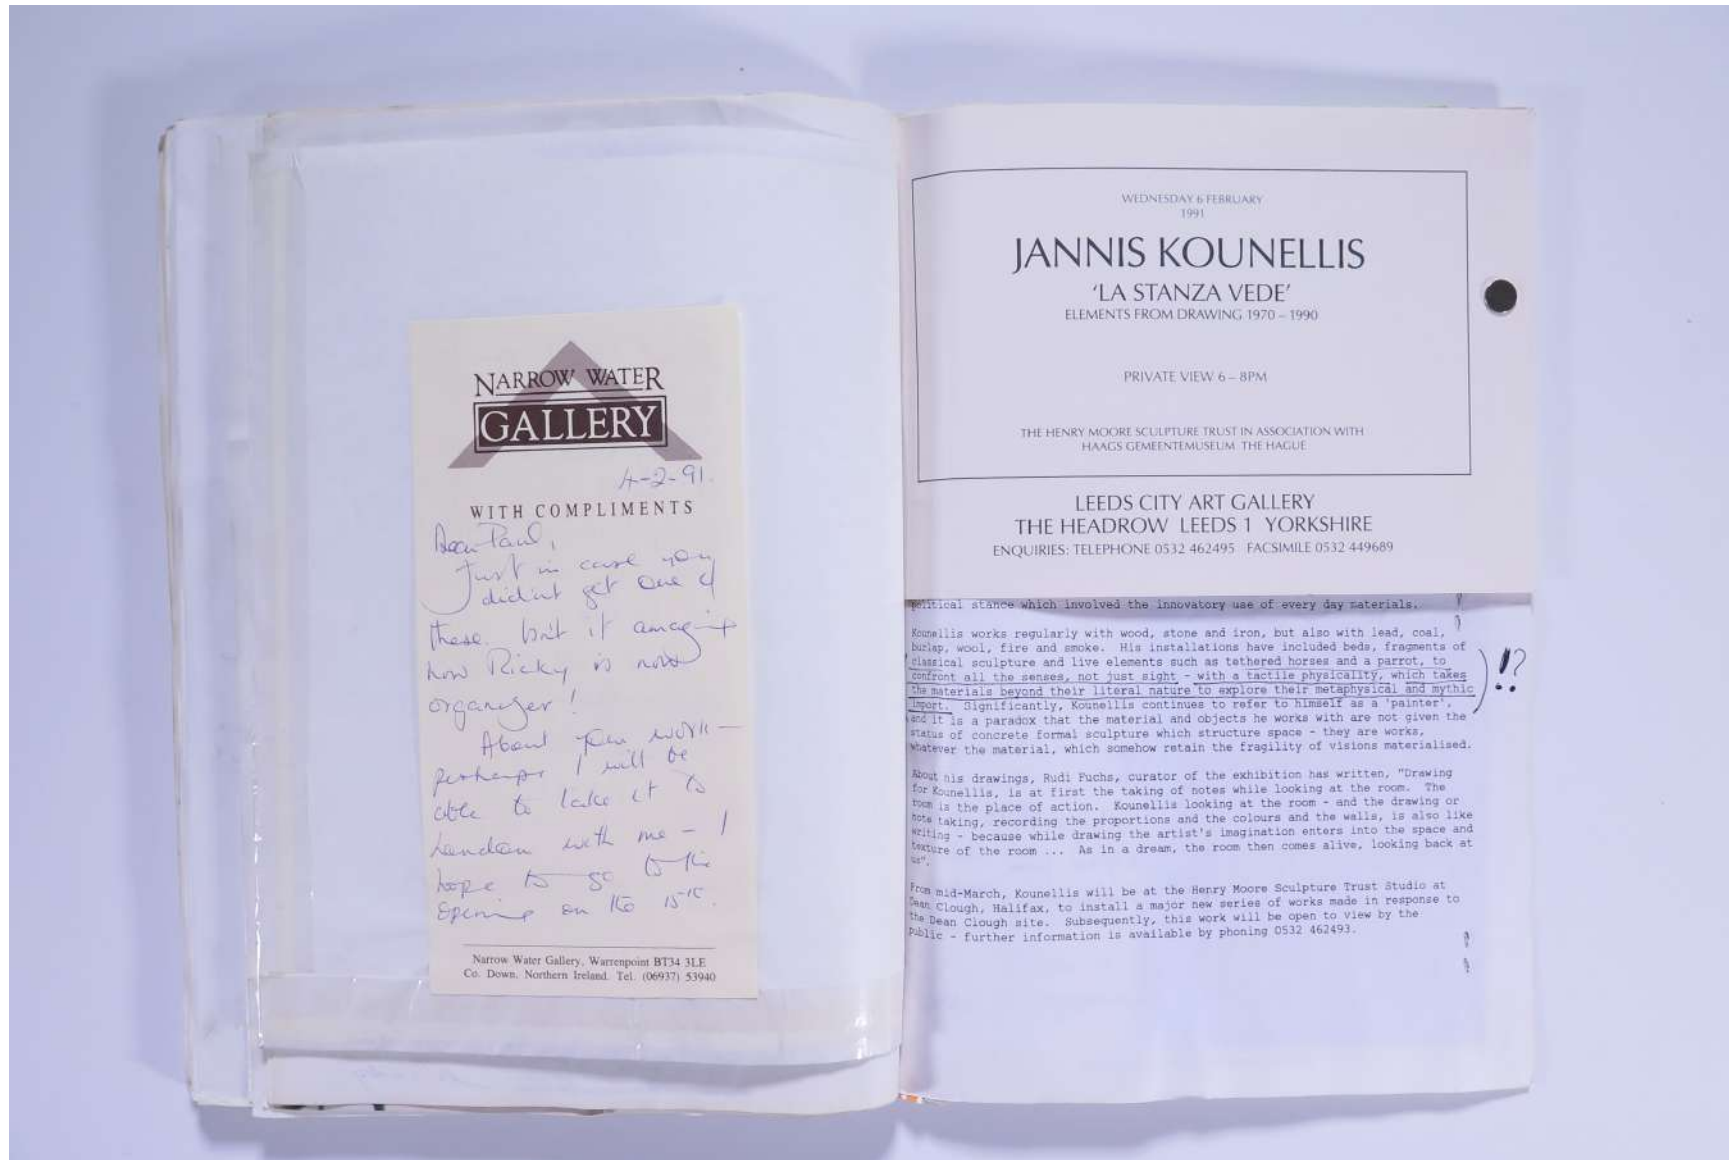 NARROW WATER
GALLERY
4-2-91.
WITH COMPLIMENTS
Dear Paul,
Just in case you
didn't get one of
these. Isn't it amazing
how Ricky is now
organizer!
About your work –
perhaps I will be
able to take it to
London with me – I
hope to go to the
opening on the 15th.
Narrow Water Gallery, Warrenpoint BT34 3LE
Co. Down, Northern Ireland. Tel. (06937) 53940
WEDNESDAY 6 FEBRUARY
1991
JANNIS KOUNELLIS
'LA STANZA VEDE'
ELEMENTS FROM DRAWING 1970 – 1990
PRIVATE VIEW 6 – 8PM
THE HENRY MOORE SCULPTURE TRUST IN ASSOCIATION WITH
HAAGS GEMEENTEMUSEUM THE HAGUE
LEEDS CITY ART GALLERY
THE HEADROW LEEDS 1 YORKSHIRE
ENQUIRIES: TELEPHONE 0532 462495 FACSIMILE 0532 449689
political stance which involved the innovatory use of every day materials.
Kounellis works regularly with wood, stone and iron, but also with lead, coal,
burlap, wool, fire and smoke. His installations have included beds, fragments of
classical sculpture and live elements such as tethered horses and a parrot, to
confront all the senses, not just sight - with a tactile physicality, which takes
the materials beyond their literal nature to explore their metaphysical and mythic
import. Significantly, Kounellis continues to refer to himself as a 'painter',
and it is a paradox that the material and objects he works with are not given the
status of concrete formal sculpture which structure space - they are works,
whatever the material, which somehow retain the fragility of visions materialised.
!?
About his drawings, Rudi Fuchs, curator of the exhibition has written, "Drawing
for Kounellis, is at first the taking of notes while looking at the room. The
room is the place of action. Kounellis looking at the room - and the drawing or
note taking, recording the proportions and the colours and the walls, is also like
writing - because while drawing the artist's imagination enters into the space and
texture of the room ... As in a dream, the room then comes alive, looking back at
us".
From mid-March, Kounellis will be at the Henry Moore Sculpture Trust Studio at
Dean Clough, Halifax, to install a major new series of works made in response to
the Dean Clough site. Subsequently, this work will be open to view by the
public - further information is available by phoning 0532 462493.